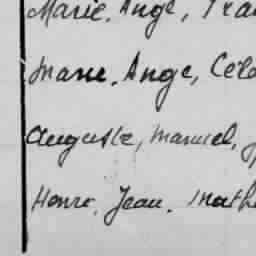 Marie, Ange, Fra
Marie, Ange, Cél
Auguste, Manuel,
Henri, Jean, Math